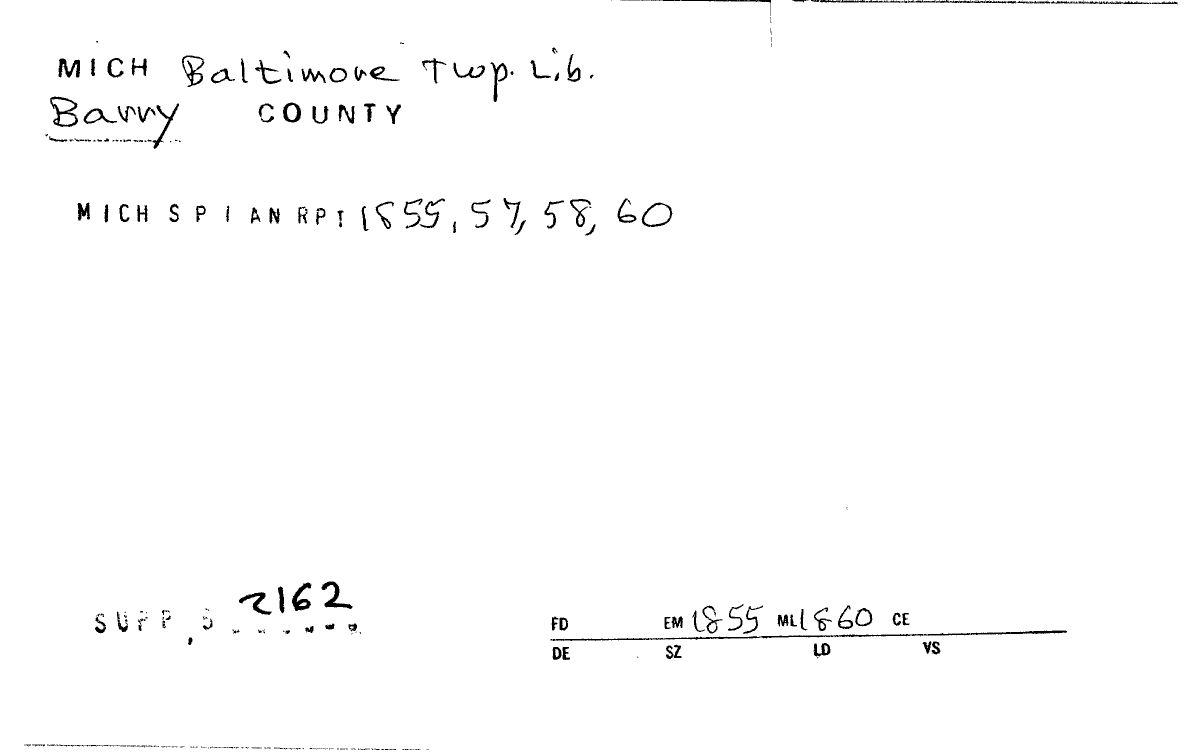 MICH Baltimore Twp. Lib.
Barry COUNTY
MICH S P I AN RPT 1855, 57, 58, 60
SUPP, 2162
FD EM 1855 ML 1860 CE
DE SZ LD VS